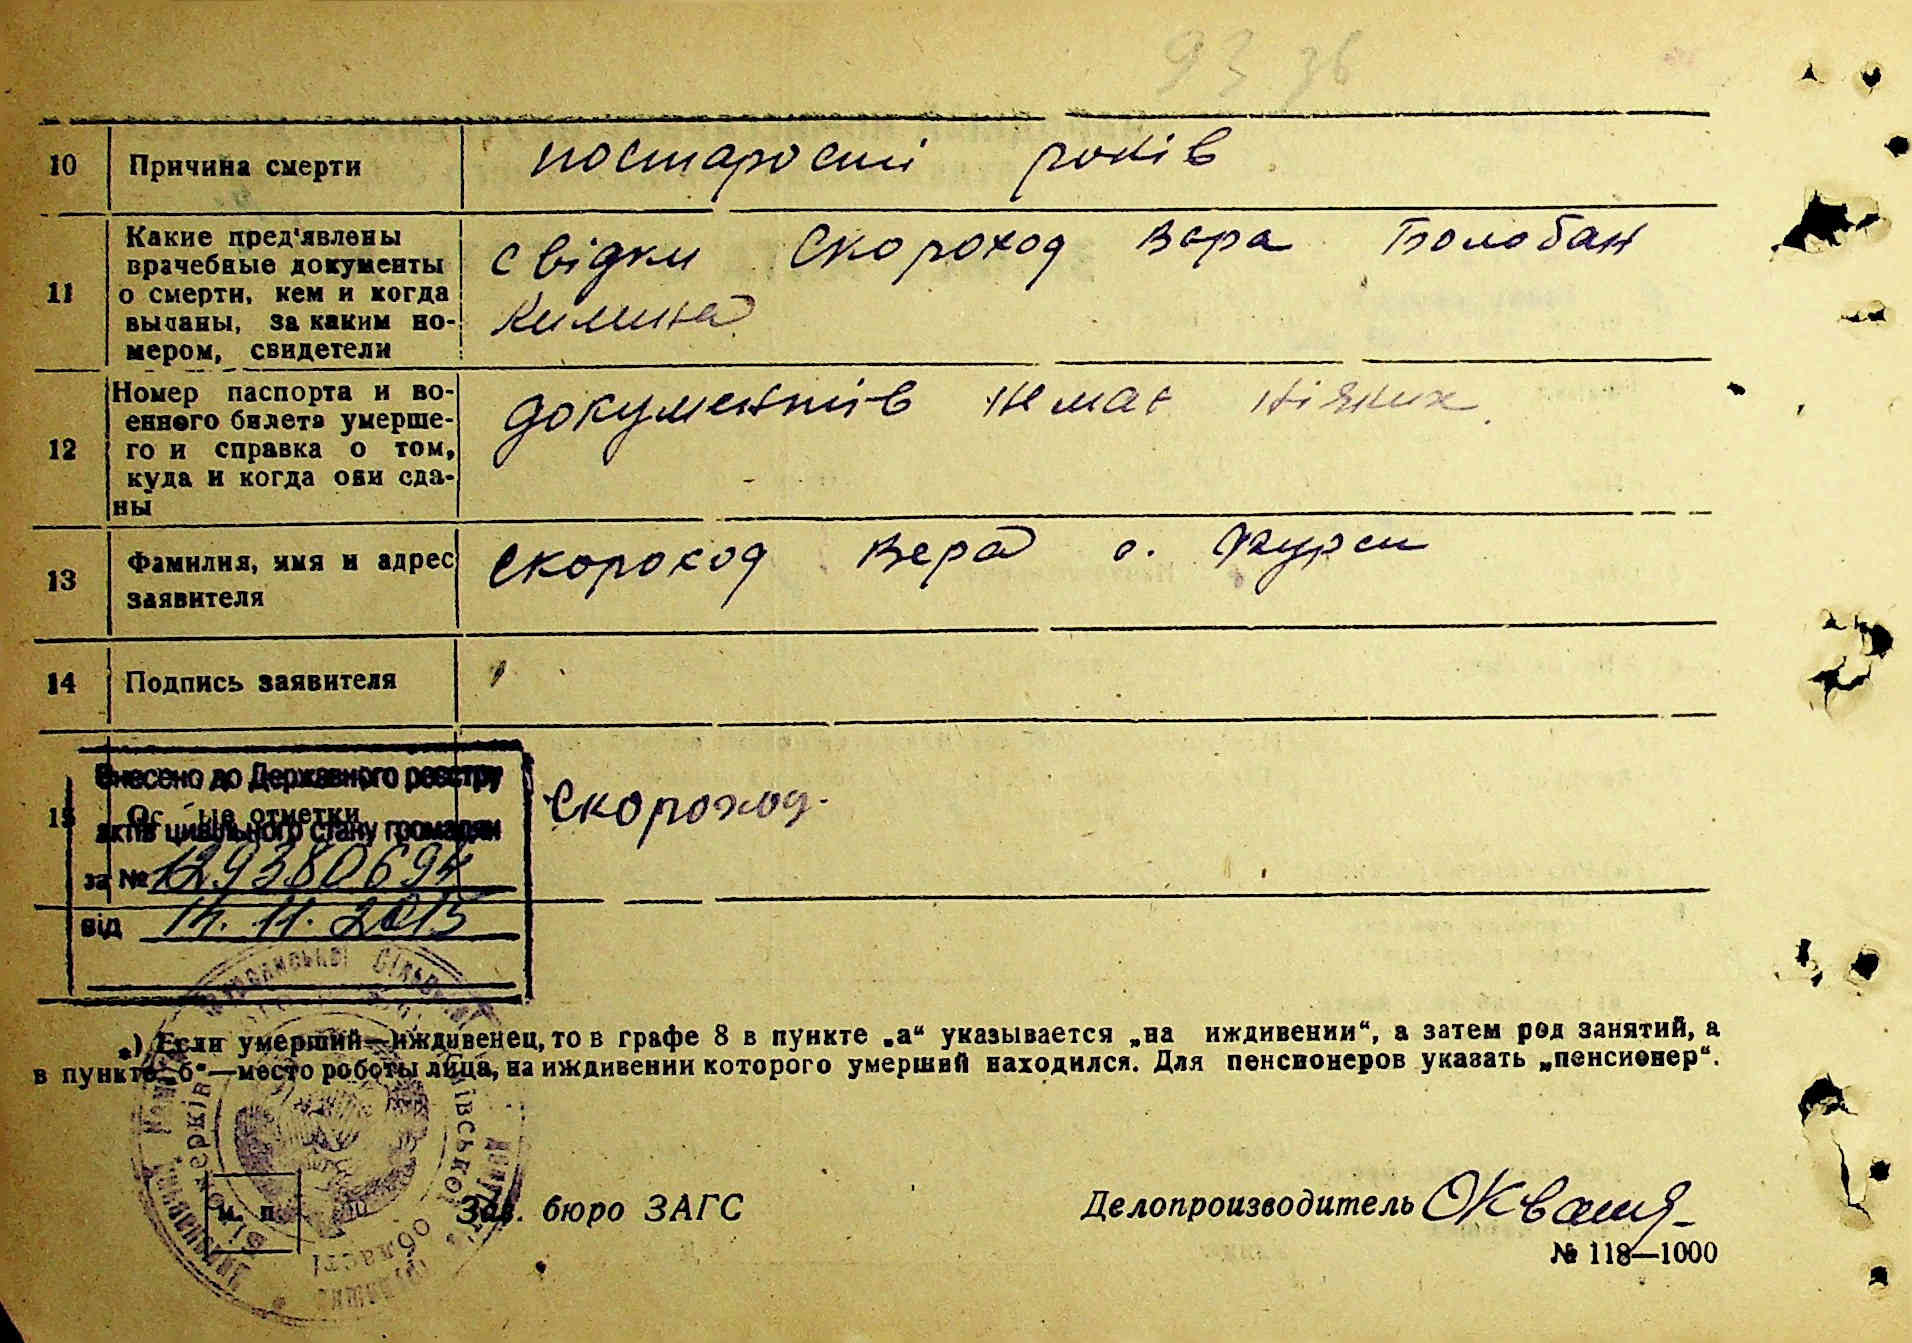 93 36
10 Причина смерти постаросші років
11 Какие пред'явлены врачебные документы о смерти, кем и когда выданы, за каким номером, свидетели
свідки Скороход Вера Болобан
Килина
12 Номер паспорта и военного билета умершего и справка о том, куда и когда они сданы
документів немає ніяких.
13 Фамилия, имя и адрес заявителя
Скороход Вера с.
14 Подпись заявителя
15 Особые отметки
Скороход.
Внесено до Державного реєстру
актів цивільного стану громадян
за № 129380694
від 14. 11. 2015
*) Если умерший—иждивенец, то в графе 8 в пункте „а“ указывается „на иждивении“, а затем род занятий, а
в пункте „б“—место роботы лица, на иждивении которого умерший находился. Для пенсионеров указать „пенсионер“.
м. п.
Зав. бюро ЗАГС
Делопроизводитель
№ 118—1000